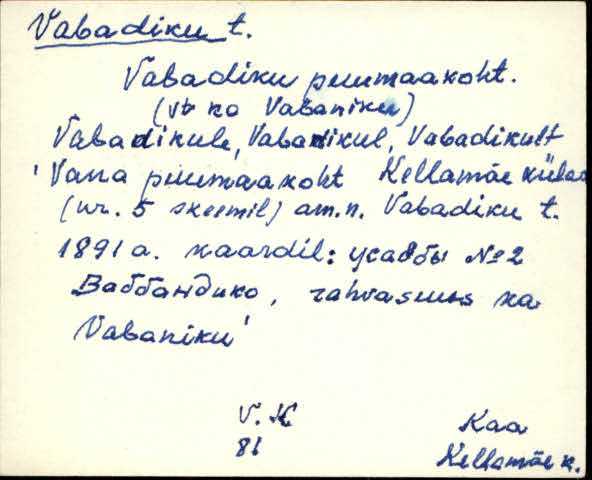 Vabadiku t.
Vabadiku puumaakoht.
(vt ka Vabaniku)
Vabadikule, Vabadikul, Vabadikult
'Vana puumaakoht Kellamäe külas
(nr. 5 skeemil) am.n. Vabadiku t.
1891 a. kaardil: усадбы №2
Ваббандико, rahvasuus ka
Vabaniku'
V. K
81
Kaa
Kellamäe k.